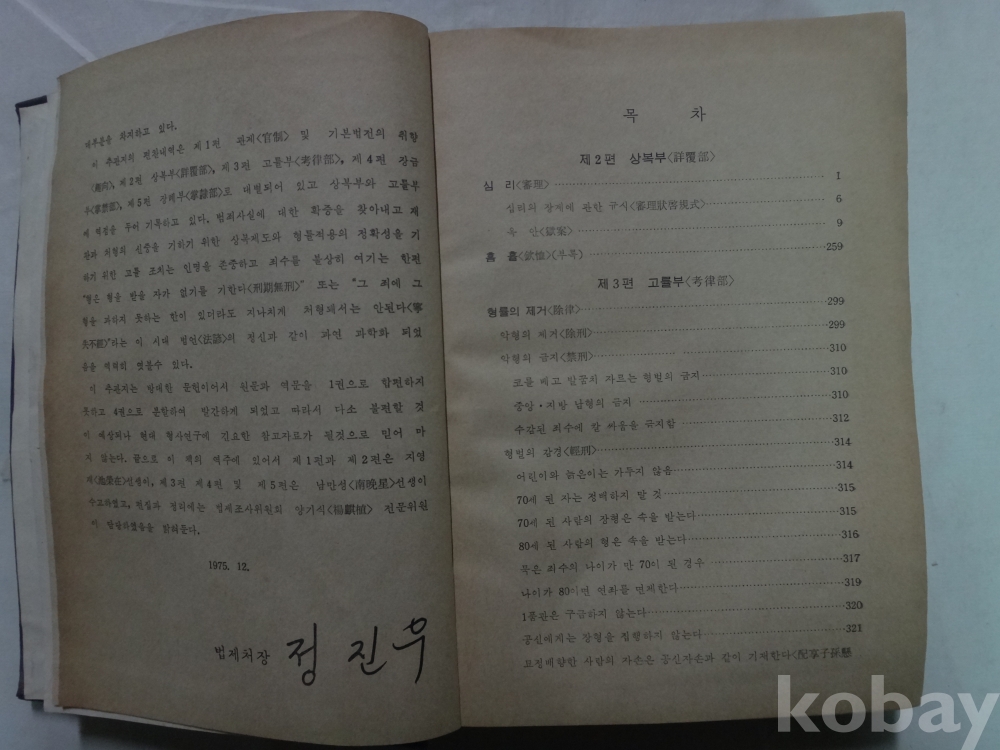 대부분을 차지하고 있다.
이 추관지의 편찬내력은 제1편 관제〈官制〉 및 기본법전의 취향
〈趣向〉, 제2편 상복부〈詳覆部〉, 제3편 고률부〈考律部〉, 제4편 장금
부〈掌禁部〉, 제5편 장례부〈掌隷部〉로 대별되어 있고 상복부와 고률부
에 역점을 두어 기록하고 있다. 범죄사실에 대한 확증을 찾아내고 재
판과 처형의 신중을 기하기 위한 상복제도와 형률적용의 정확성을 기
하기 위한 고률 조치는 인명을 존중하고 죄수를 불상히 여기는 한편
"형은 형을 받을 자가 없기를 기한다〈刑期無刑〉" 또는 "그 죄에 그
형을 과하지 못하는 한이 있더라도 지나치게 처형해서는 안된다〈寧
失不經〉"라는 이 시대 법언〈法諺〉의 정신과 같이 과연 과학화 되었
음을 역력히 엿볼수 있다.
이 추관지는 방대한 문헌이어서 원문과 역문을 1권으로 합편하지
못하고 4권으로 분할하여 발간하게 되었고 따라서 다소 불편할 것
이 예상되나 현대 형사연구에 긴요한 참고자료가 될것으로 믿어 마
지 않는다. 끝으로 이 책의 역주에 있어서 제1편과 제2편은 지영
재〈池榮在〉선생이, 제3편 제4편 및 제5편은 남만성〈南晩星〉선생이
수고하였고, 편집과 정리에는 법제조사위원회 양기식〈楊麒植〉 전문위원
이 담당하였음을 밝혀둔다.
1975. 12.
법제처장 정진우
목 차
제2편 상복부〈詳覆部〉
심 리〈審理〉 1
심리와 장계에 관한 규식〈審理狀啓規式〉 6
옥 안〈獄案〉 9
흠 휼〈欽恤〉(부록) 259
제3편 고률부〈考律部〉
형률의 제거〈除律〉 299
악형의 제거〈除刑〉 299
악형의 금지〈禁刑〉 310
코를 베고 발꿈치 자르는 형벌의 금지 310
중앙·지방 남형의 금지 310
수감된 죄수에 칼 씌움을 금지함 312
형벌의 감경〈輕刑〉 314
어린이와 늙은이는 가두지 않음 314
70세 된 자는 정배하지 말 것 315
70세 된 사람의 장형은 속을 받는다 315
80세 된 사람의 형은 속을 받는다 316
묵은 죄수의 나이가 만 70이 된 경우 317
나이가 80이면 연좌를 면제한다 319
1품관은 구금하지 않는다 320
공신에게는 장형을 집행하지 않는다 321
묘정배향한 사람의 자손은 공신자손과 같이 기재한다〈配享子孫懸
kobay